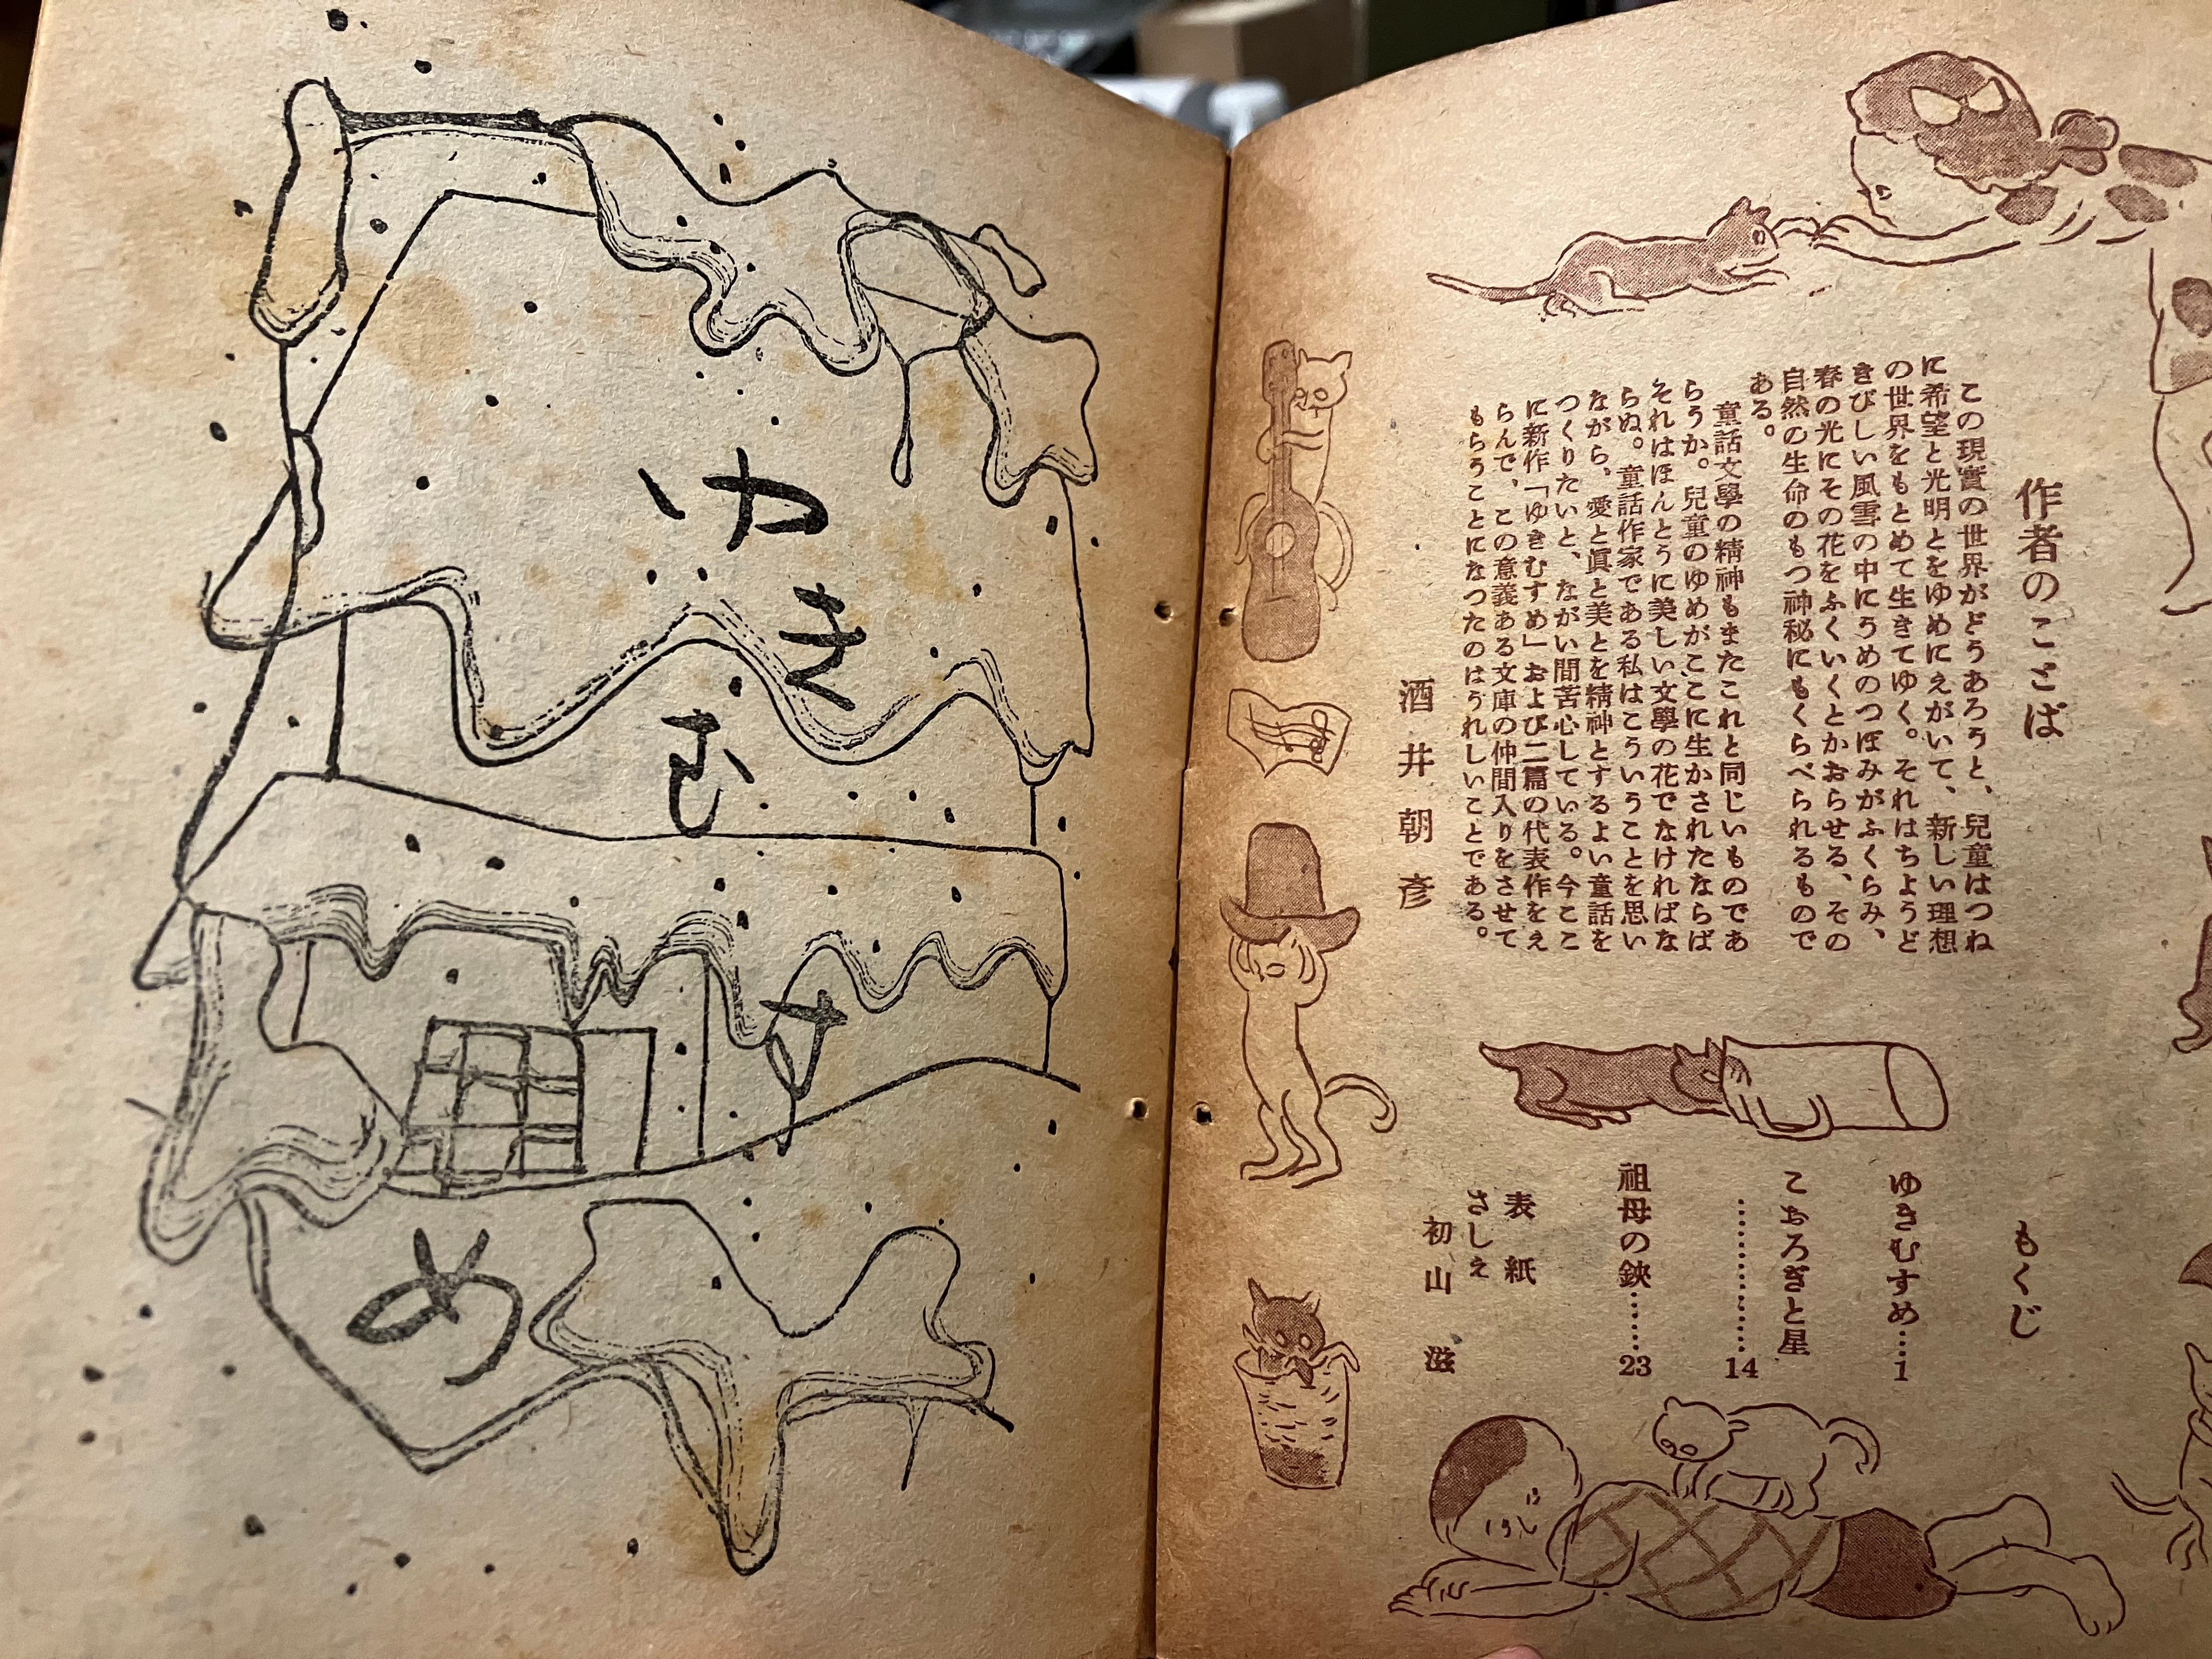 作者のことば
この現實の世界がどうあろうと、兒童はつね
に希望と光明とをゆめにえがいて、新しい理想
の世界をもとめて生きてゆく。それはちようど
きびしい風雪の中にうめのつぼみがふくらみ、
春の光にその花をふくいくとかおらせる、その
自然の生命のもつ神秘にもくらべられるもので
ある。
童話文學の精神もまたこれと同じいものであ
らうか。兒童のゆめがここに生かされたならば
それはほんとうに美しい文學の花でなければな
らぬ。童話作家である私はこういうことを思い
ながら、愛と眞と美とを精神とするよい童話を
つくりたいと、ながい間苦心している。今ここ
に新作「ゆきむすめ」および二篇の代表作をえ
らんで、この意義ある文庫の仲間入りをさせて
もらうことになつたのはうれしいことである。
酒井朝彦
もくじ
ゆきむすめ……1
こおろぎと星
…………14
祖母の鋏……23
表紙
さしえ
初山滋
ゆきむすめ